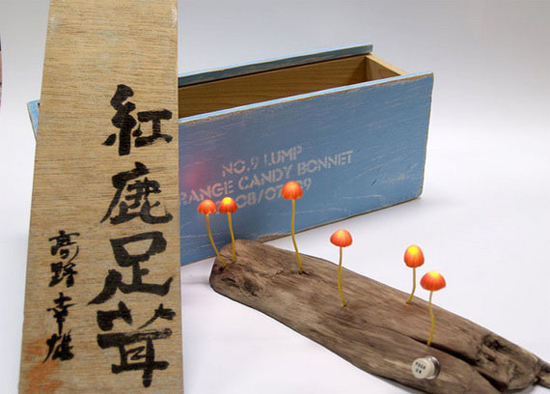 紅鹿足茸
高野幸雄
NO.9 LUMP
RANGE CANDY BONNET